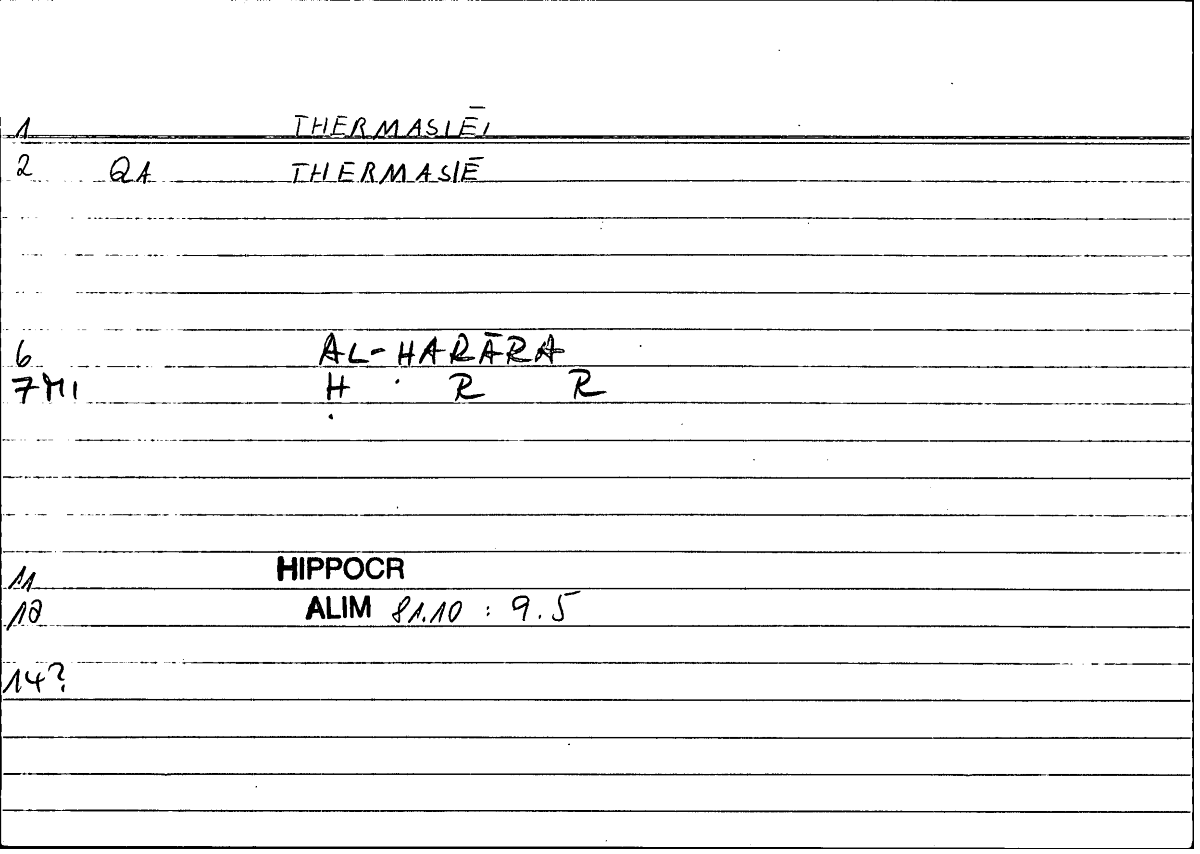 1 THERMASIĒI
2 QA THERMASIĒ
6 AL-HARĀRA
7 MI Ḥ R R
11 HIPPOCR
12 ALIM 81.10 : 9.5
14?